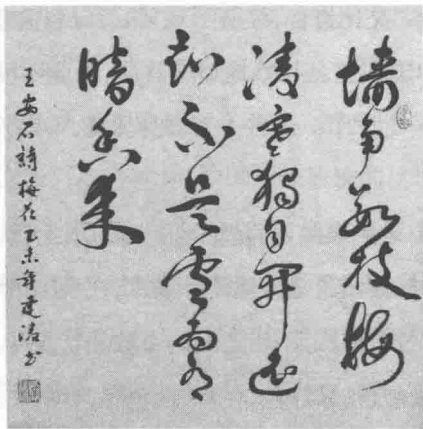 墙角数枝梅
凌寒獨自開遥
知不是雪為有
暗香来
王安石詩梅花乙未年建 书